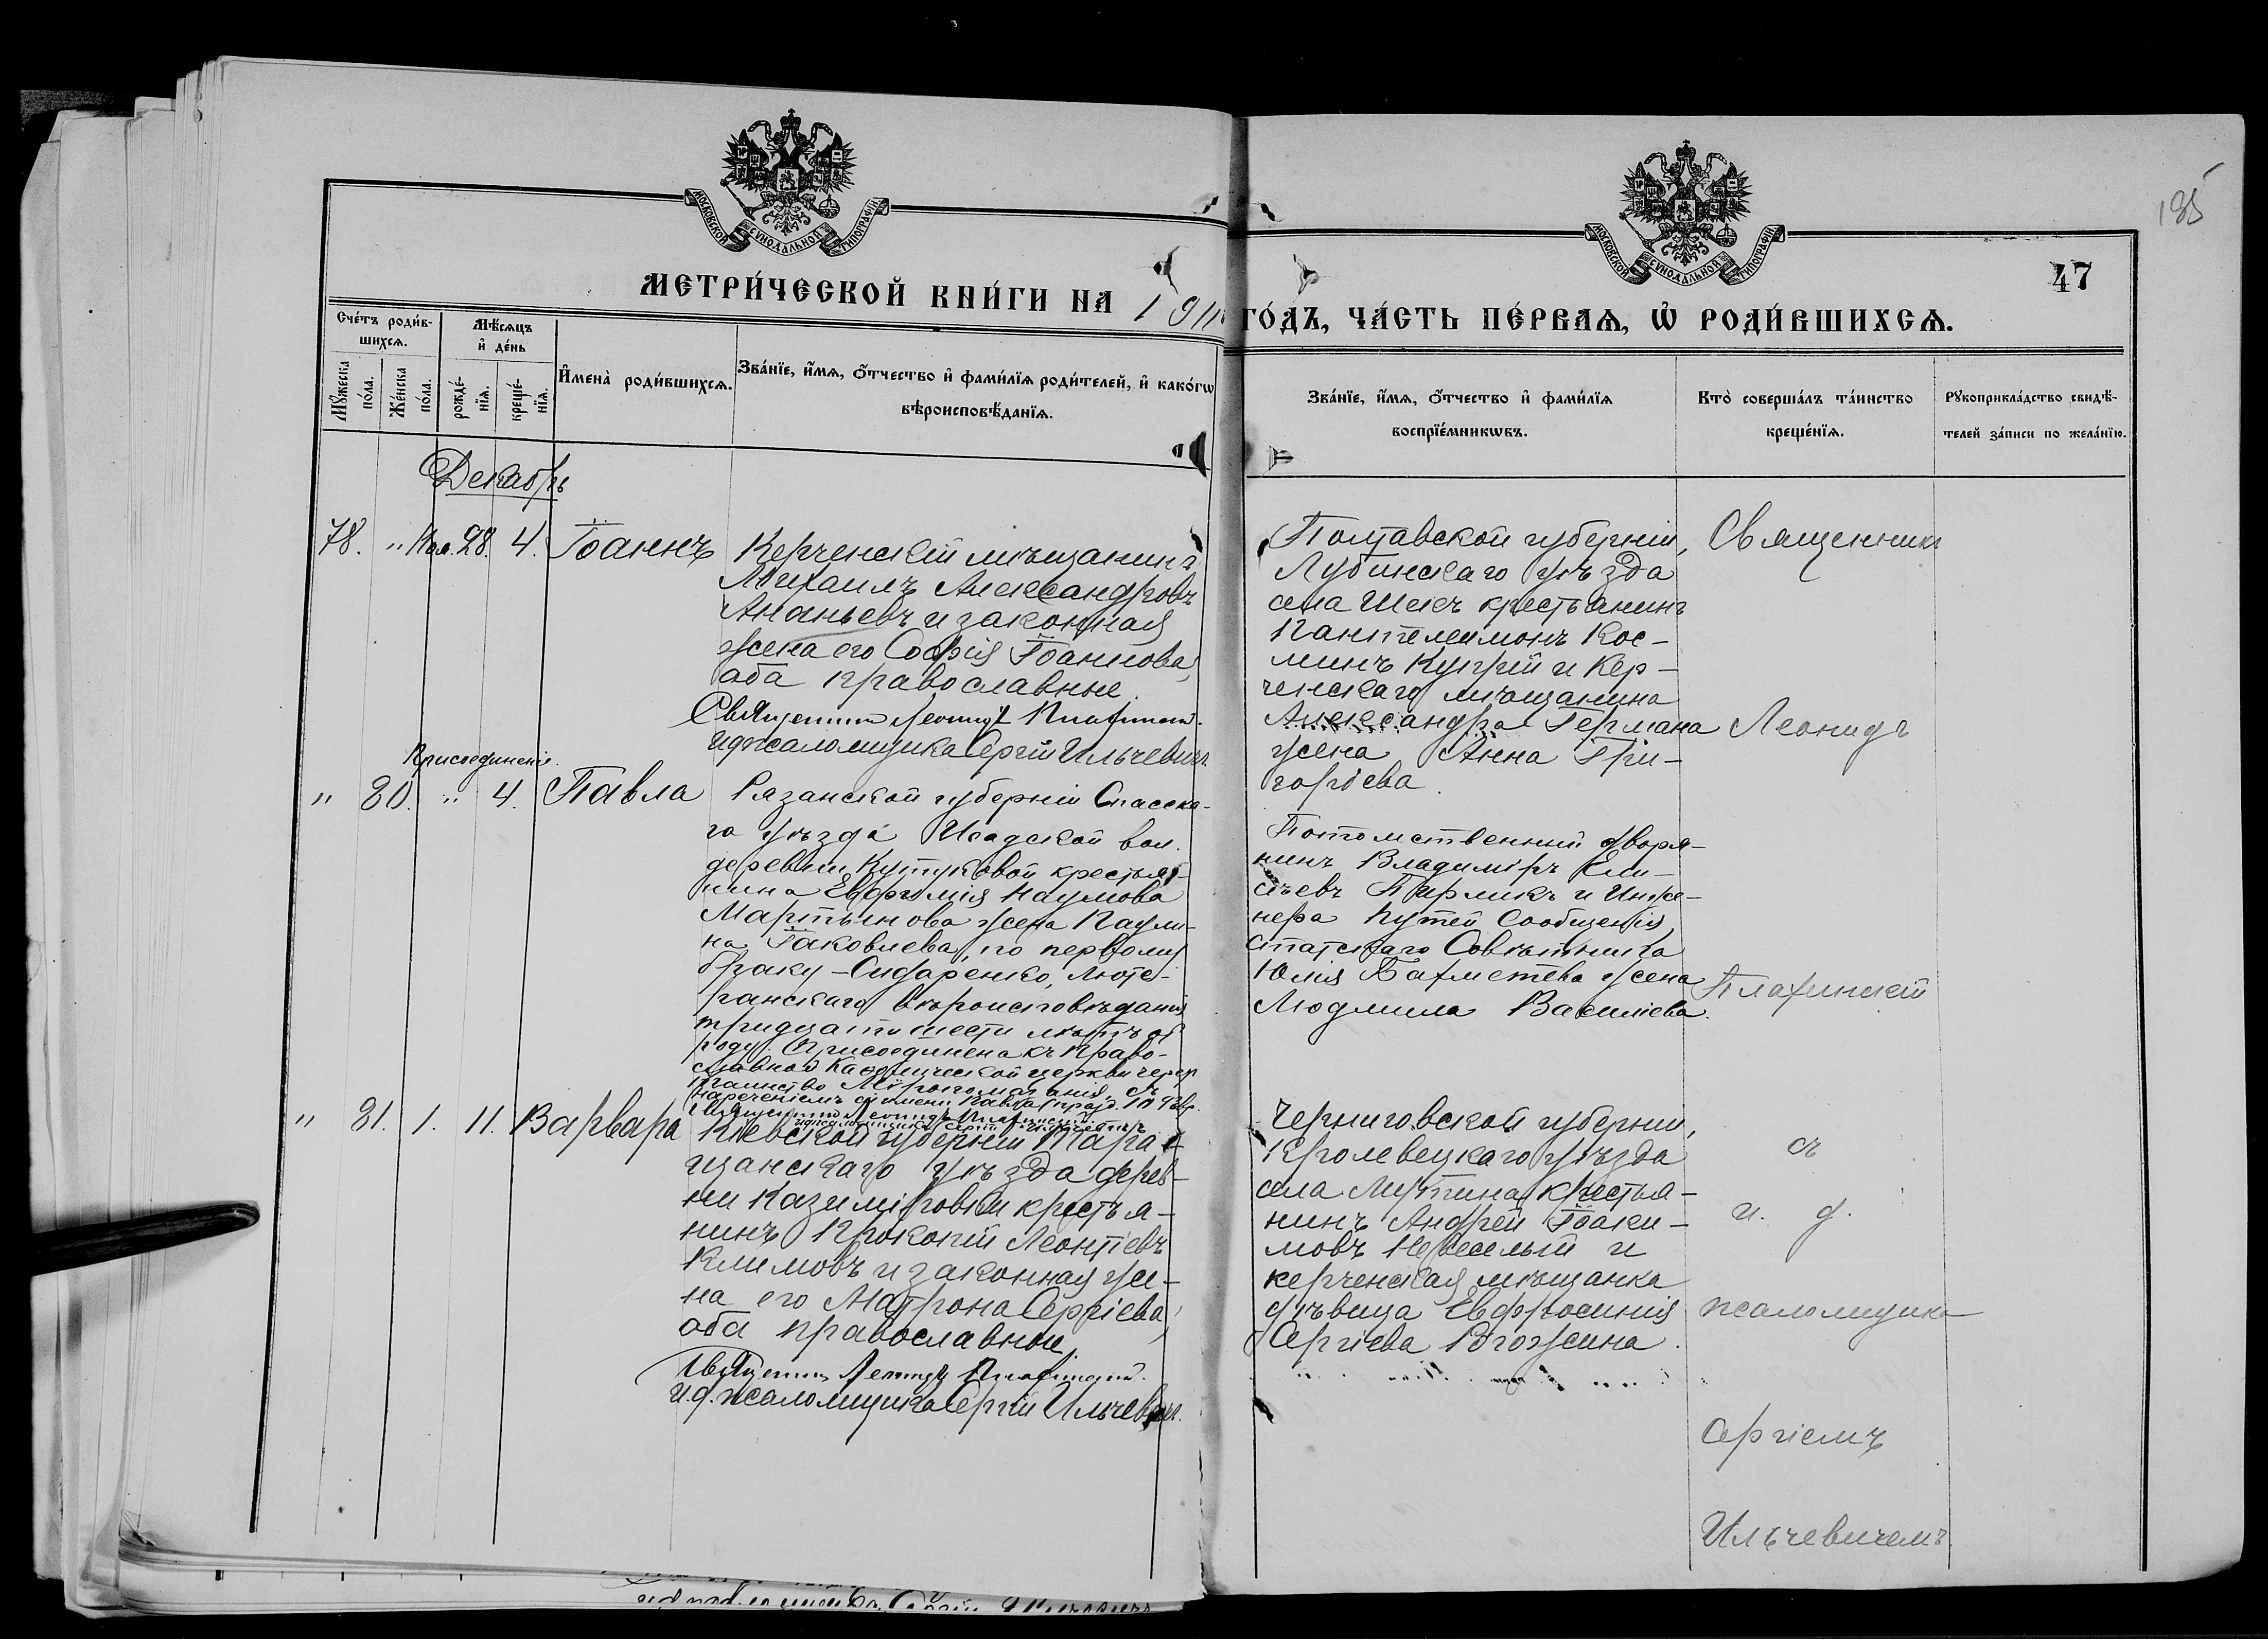 135
МОСКОВСКОЙ СѴНОДАЛЬНОЙ ТИПОГРАФІИ
МОСКОВСКОЙ СѴНОДАЛЬНОЙ ТИПОГРАФІИ
47
МЕТРИ́ЧЕСКОЙ КНИ́ГИ НА 1911
ГО́ДЪ, ЧА́СТЬ ПЕ́РВАѦ, Ѡ҆ РОДИ́ВШИХСѦ.
Сче́тъ роди́в-
шихсѧ.
Мꙋ́жеска по́ла.
Же́нска по́ла.
Мѣ́сѧцъ и҆ де́нь
рожде́-нїѧ.
креще́-нїѧ.
И҆мена̀ роди́вшихсѧ.
Зва́нїе, и҆́мѧ, ѻ҆́тчество и҆ фами́лїѧ роди́телей, и҆ како́гѡ
вѣроисповѣ́данїѧ.
Зва́нїе, и҆́мѧ, ѻ҆́тчество и҆ фами́лїѧ
воспрїе́мникѡвъ.
Кто̀ соверша́лъ та́инство
креще́нїѧ.
Рꙋкоприкла́дство свидѣ́-
телей за́писи по жела́нїю.
Декабрь
78. " Ноя. 28. 4. Іоаннъ
Керченскій мѣщанинъ
Михаилъ Александровъ
Ананьевъ и законная
жена его Софія Іоаннова,
оба православные.
Священникъ Леонидъ Плахинскій.
и д псаломщика Сергій Ильчевичъ.
Полтавской губерніи,
Лубинскаго уѣзда
села Шекъ крестьянинъ
Пантелеимонъ Кос-
минъ Купрій и Кер-
ченскаго мѣщанина
Александра Германа
жена Анна Гри-
горіева.
Присоединеніе.
" 80. " 4. Павла
Рязанской губерніи Спасска-
го уѣзда Исадской вол.
деревни Кутуковой крестья-
нина Евфимія Наумова
Мартынова жена Паули-
на Іаковлева, по первому
браку – Сидаренко, люте-
ранскаго вѣроисповѣданія
тридцати шести лѣтъ от
роду. Присоединена къ Право-
славной Каѳолической церкви черезъ
таинство Мѵропомазанія, съ
нареченіемъ имени Павла (празд. 10 Фев.
Священникъ Леонидъ Плахинскій.
и д псаломщика Сергій Ильчевичъ
Потомственный дворя-
нинъ Владиміръ Ели-
сѣевъ Пирликъ и Инже-
нера Путей Сообщенія
Статскаго Совѣтника
Юлія Бахметева жена
Людмила Василіева.
" 81. 1. 11. Варвара
Кіевской губерніи Тара-
щанскаго уѣзда дерев-
ни Казиміровки крестья-
нинъ Прокопій Леонтіевъ
Климовъ и законная же-
на его Матрона Сергіева,
оба православные.
Священникъ Леонидъ Плахинскій.
и.д. псаломщика Сергій Ильчевичъ.
Черниговской губерніи,
Кролевецкаго уѣзда
села Мутина крестья-
нинъ Андрей Іоаки-
мовъ Невеселый и
керченская мѣщанка
дѣвица Евфросинія
Сергіева Рогожина.
Священникъ
Леонидъ
Плахинскій
съ
и. д.
псаломщика
Сергіемъ
Ильчевичемъ.